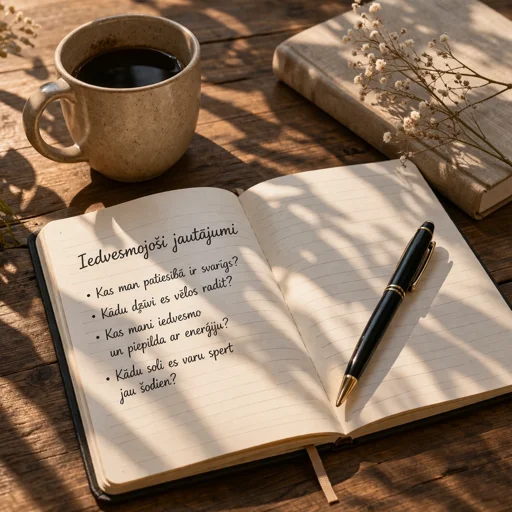 Iedvesmojoši jautājumi
• Kas man patiesībā ir svarīgs?
• Kādu dzīvi es vēlos radīt?
• Kas mani iedvesmo
un piepilda ar enerģiju?
• Kādu soli es varu spert
jau šodien?